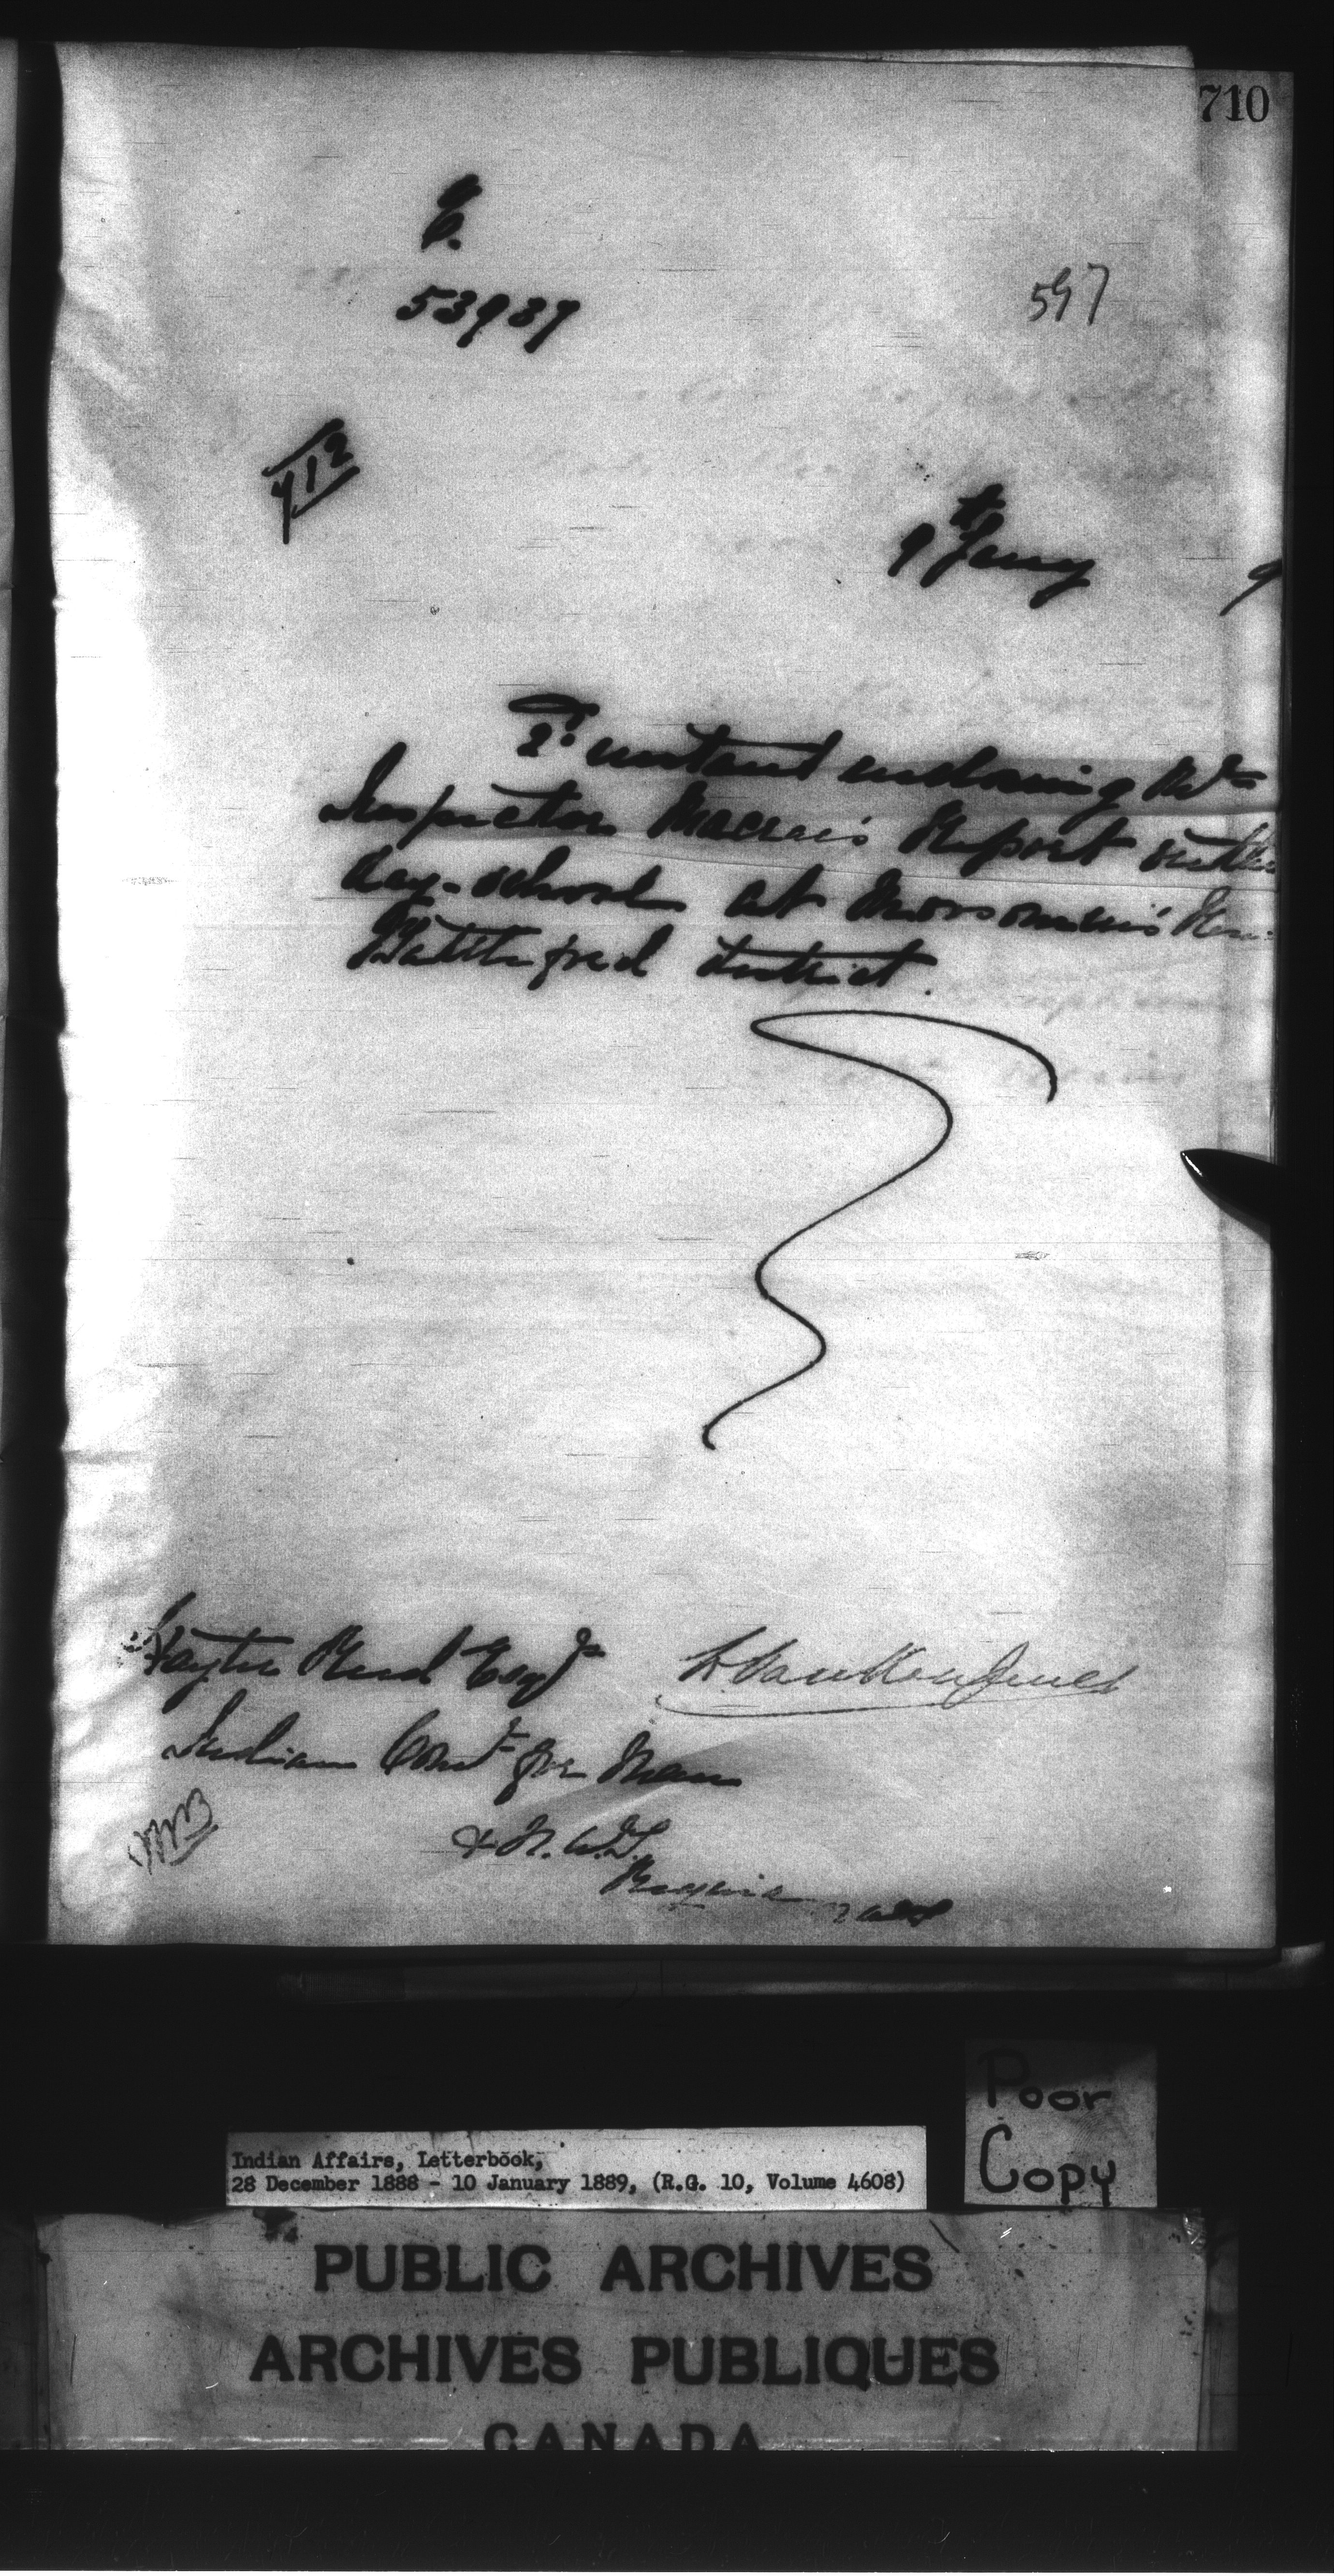 710
B.
53937
597
712
9th Jany 9
2d instant enclosing Mr
Inspector Macrae's Report on the
day-school at Moosomin's Res:
Battleford District.
Hayter Reed Esqr
L. Vankoughnet
Indian Comr for Man
& N.W.T.
Regina
Poor
Copy
Indian Affairs, Letterbook,
28 December 1888 - 10 January 1889, (R.G. 10, Volume 4608)
PUBLIC ARCHIVES
ARCHIVES PUBLIQUES
CANADA